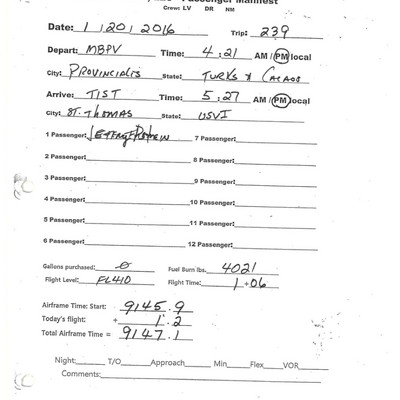 Passenger Manifest
Crew: LV DR NM
Date: 1 / 20 / 2016 Trip: 239
Depart: MBPV Time: 4:21 AM / PM local
City: PROVINCIALIS State: TURKS & CAICOS
Arrive: TIST Time: 5:27 AM / PM local
City: ST. THOMAS State: USVI
1 Passenger: JEFFREY EPSTEIN 7 Passenger:
2 Passenger: 8 Passenger:
3 Passenger: 9 Passenger:
4 Passenger: 10 Passenger:
5 Passenger: 11 Passenger:
6 Passenger: 12 Passenger:
Gallons purchased: 0 Fuel Burn lbs. 4021
Flight Level: FL410 Flight Time: 1 + 06
Airframe Time: Start: 9145.9
Today's flight: + 1.2
Total Airframe Time = 9147.1
Night: T/O Approach Min Flex VOR
Comments: